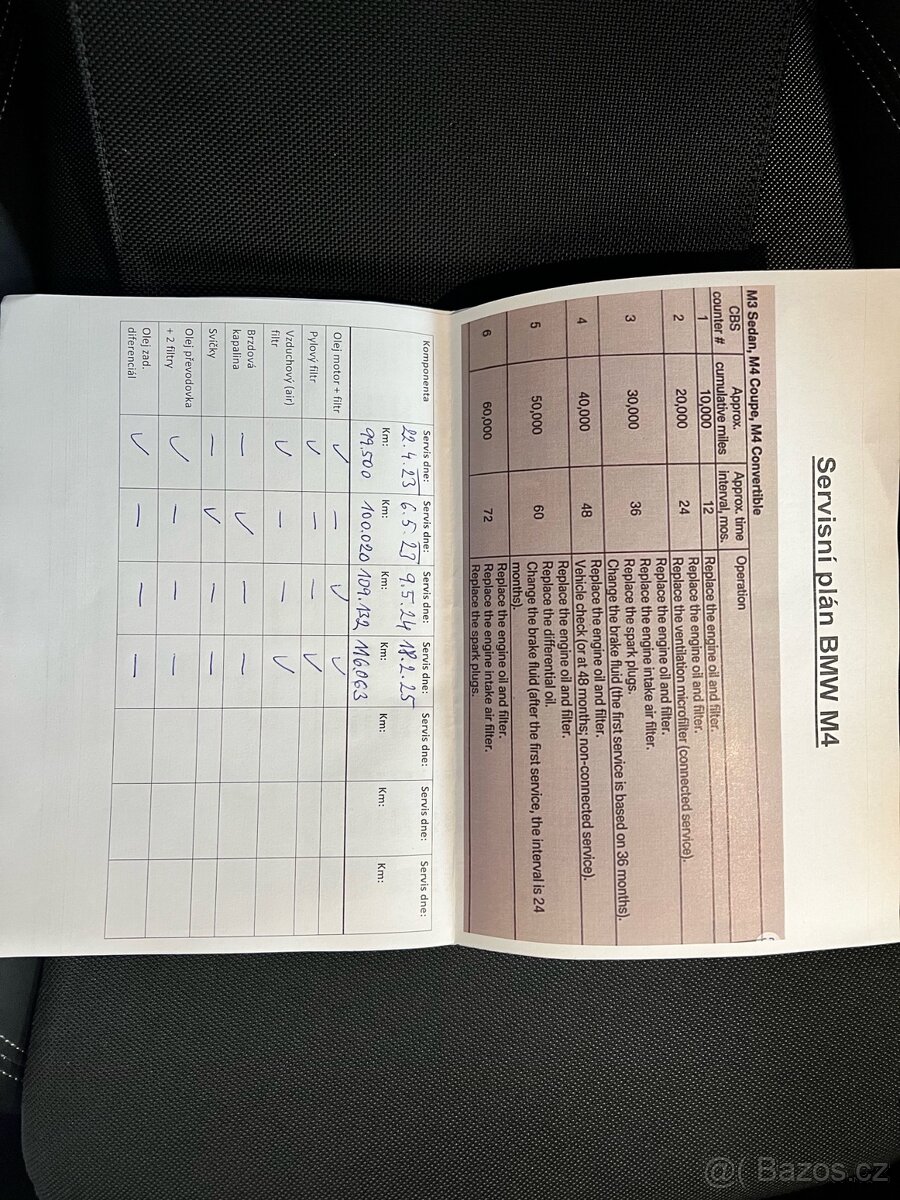 Servisní plán BMW M4
M3 Sedan, M4 Coupe, M4 Convertible
CBS counter # Approx. cumulative miles Approx. time interval, mos. Operation
1 10,000 12 Replace the engine oil and filter.
2 20,000 24 Replace the engine oil and filter.
Replace the ventilation microfilter (connected service).
3 30,000 36 Replace the engine oil and filter.
Replace the engine intake air filter.
Replace the spark plugs.
Change the brake fluid (the first service is based on 36 months).
4 40,000 48 Replace the engine oil and filter.
Vehicle check (or at 48 months; non-connected service).
5 50,000 60 Replace the engine oil and filter.
Replace the differential oil.
Change the brake fluid (after the first service, the interval is 24
months).
6 60,000 72 Replace the engine oil and filter.
Replace the engine intake air filter.
Replace the spark plugs.
Komponenta Servis dne: Servis dne: Servis dne: Servis dne: Servis dne: Servis dne: Servis dne:
22.4.23 6.5.23 9.5.24 18.2.25
Km: Km: Km: Km: Km: Km: Km:
99.500 100.020 109.132 116.063
Olej motor + filtr ✓ — ✓ ✓
Pylový filtr ✓ — — ✓
Vzduchový (air) filtr ✓ — — ✓
Brzdová kapalina — ✓ — —
Svíčky — ✓ — —
Olej převodovka + 2 filtry ✓ — — —
Olej zad. diferenciál ✓ — — —
@( Bazos.cz